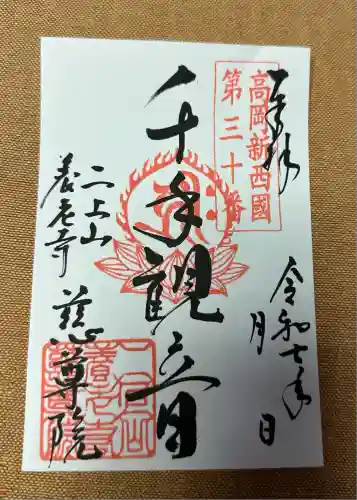 奉拝
高岡新西國
第三十番
令和七年
月
日
千手観音
二上山
養老寺
慈尊院